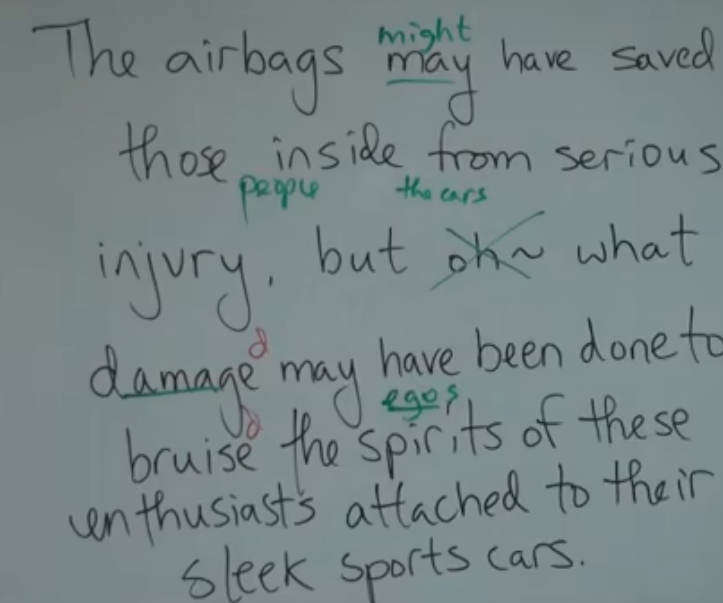 might
The airbags may have saved
those inside from serious
people the cars
injury, but oh~ what
d
damage may have been done to
egos
d
bruise the spirits of these
enthusiasts attached to their
sleek sports cars.